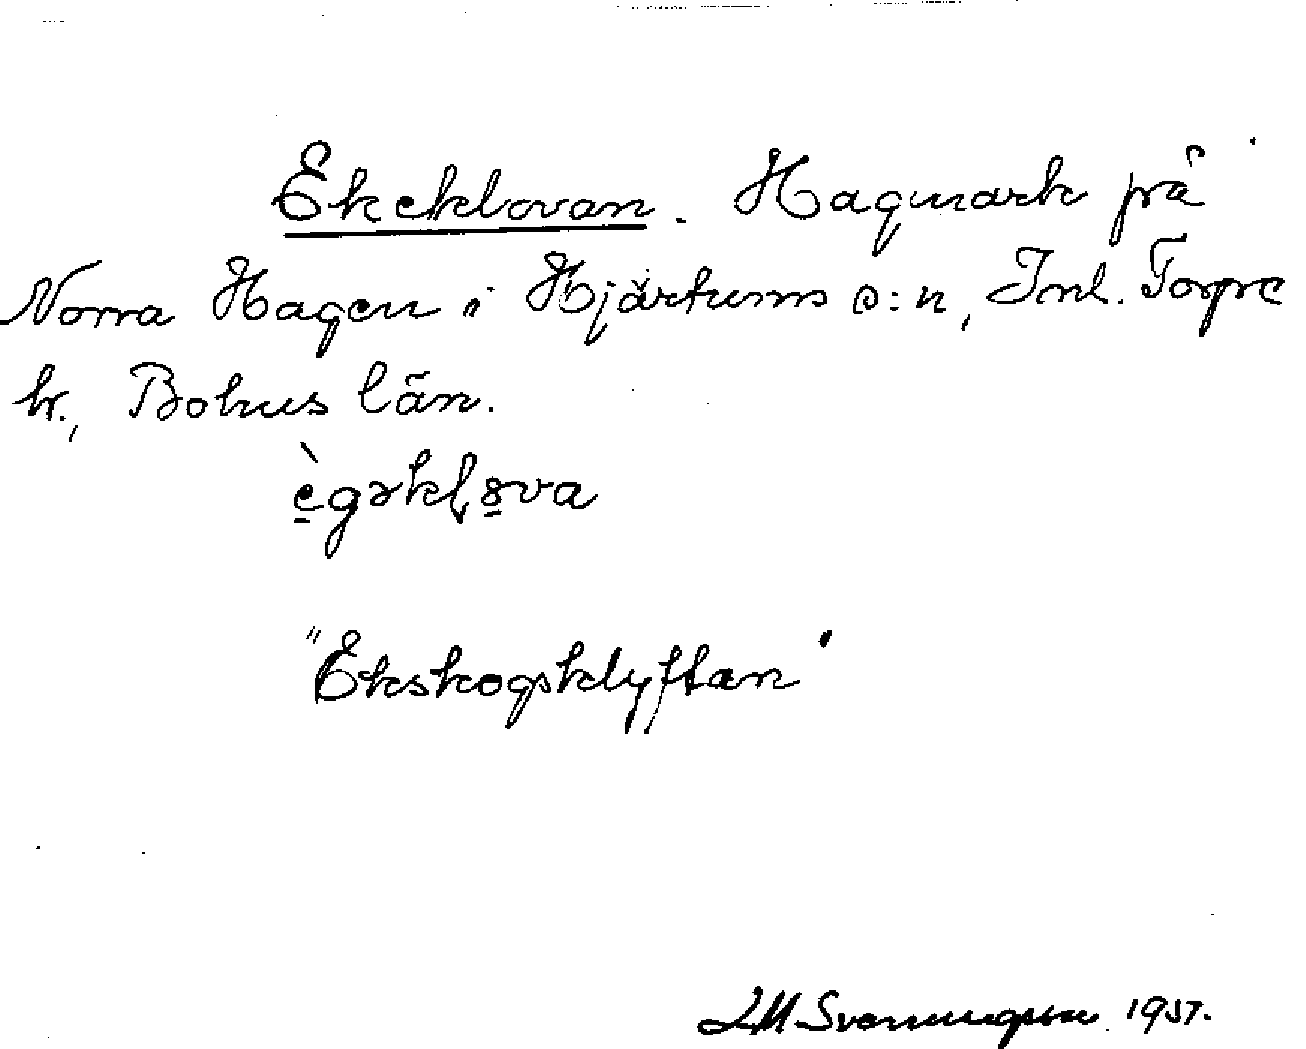 Ekeklovan. Hagmark på
Norra Hagen i Hjärtums s:n, Inl. Torpe
hr., Bohus län.
"Ekskogsklyftan"
1937.